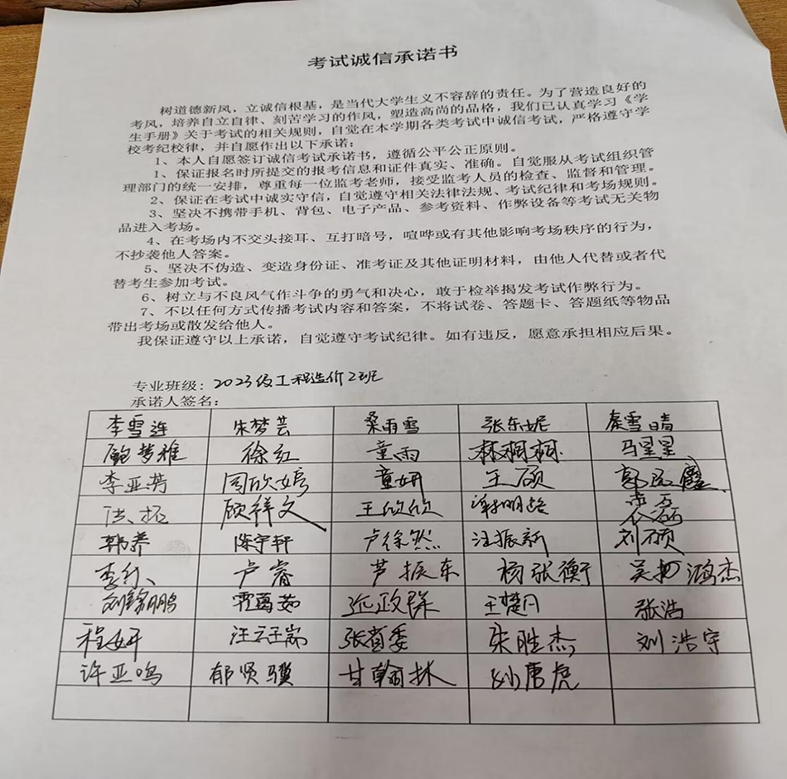 考试诚信承诺书
树道德新风，立诚信根基，是当代大学生义不容辞的责任。为了营造良好的
考风，培养自立自律、刻苦学习的作风，塑造高尚的品格，我们已认真学习《学
生手册》关于考试的相关规则，自觉在本学期各类考试中诚信考试，严格遵守学
校考纪校律，并自愿作出以下承诺：
1、本人自愿签订诚信考试承诺书，遵循公平公正原则。
1、保证报名时所提交的报考信息和证件真实、准确。自觉服从考试组织管
理部门的统一安排，尊重每一位监考老师，接受监考人员的检查、监督和管理。
2、保证在考试中诚实守信，自觉遵守相关法律法规、考试纪律和考场规则。
3、坚决不携带手机、背包、电子产品、参考资料、作弊设备等考试无关物
品进入考场。
4、在考场内不交头接耳、互打暗号，喧哗或有其他影响考场秩序的行为，
不抄袭他人答案。
5、坚决不伪造、变造身份证、准考证及其他证明材料，由他人代替或者代
替考生参加考试。
6、树立与不良风气作斗争的勇气和决心，敢于检举揭发考试作弊行为。
7、不以任何方式传播考试内容和答案，不将试卷、答题卡、答题纸等物品
带出考场或散发给他人。
我保证遵守以上承诺，自觉遵守考试纪律。如有违反，愿意承担相应后果。
专业班级：2023级工程造价2班
承诺人签名：
李雪连 朱梦芸 桑雨雪 张东妮 秦雪晴
鲍梦雅 徐红 童雨 林桐桐 马星星
李亚芳 闫欣婷 童妍 王硕
洪拓 顾祥文 王欣欣
韩养 陈宇轩 卢徐然 汪振新 刘硕
卢睿 芦振东 杨张衡 鸿杰
刘锦鹏 王楚月 张浩
程妍 朱胜杰 刘浩宇
许亚鸣 郁贤骥 甘翰林 孙唐虎